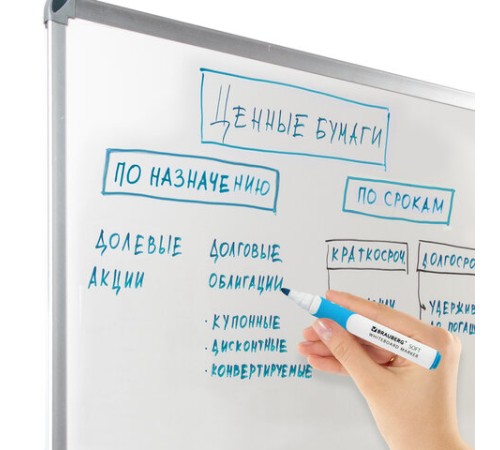 ЦЕННЫЕ БУМАГИ
ПО НАЗНАЧЕНИЮ
ПО СРОКАМ
ДОЛЕВЫЕ
АКЦИИ
ДОЛГОВЫЕ
ОБЛИГАЦИИ
· КУПОННЫЕ
· ДИСКОНТНЫЕ
· КОНВЕРТИРУЕМЫЕ
КРАТКОСРОЧ
ДОЛГОСРО
УДЕРЖИВ
ДО ПОГАШ
BRAUBERG SOFT
WHITEBOARD MARKER